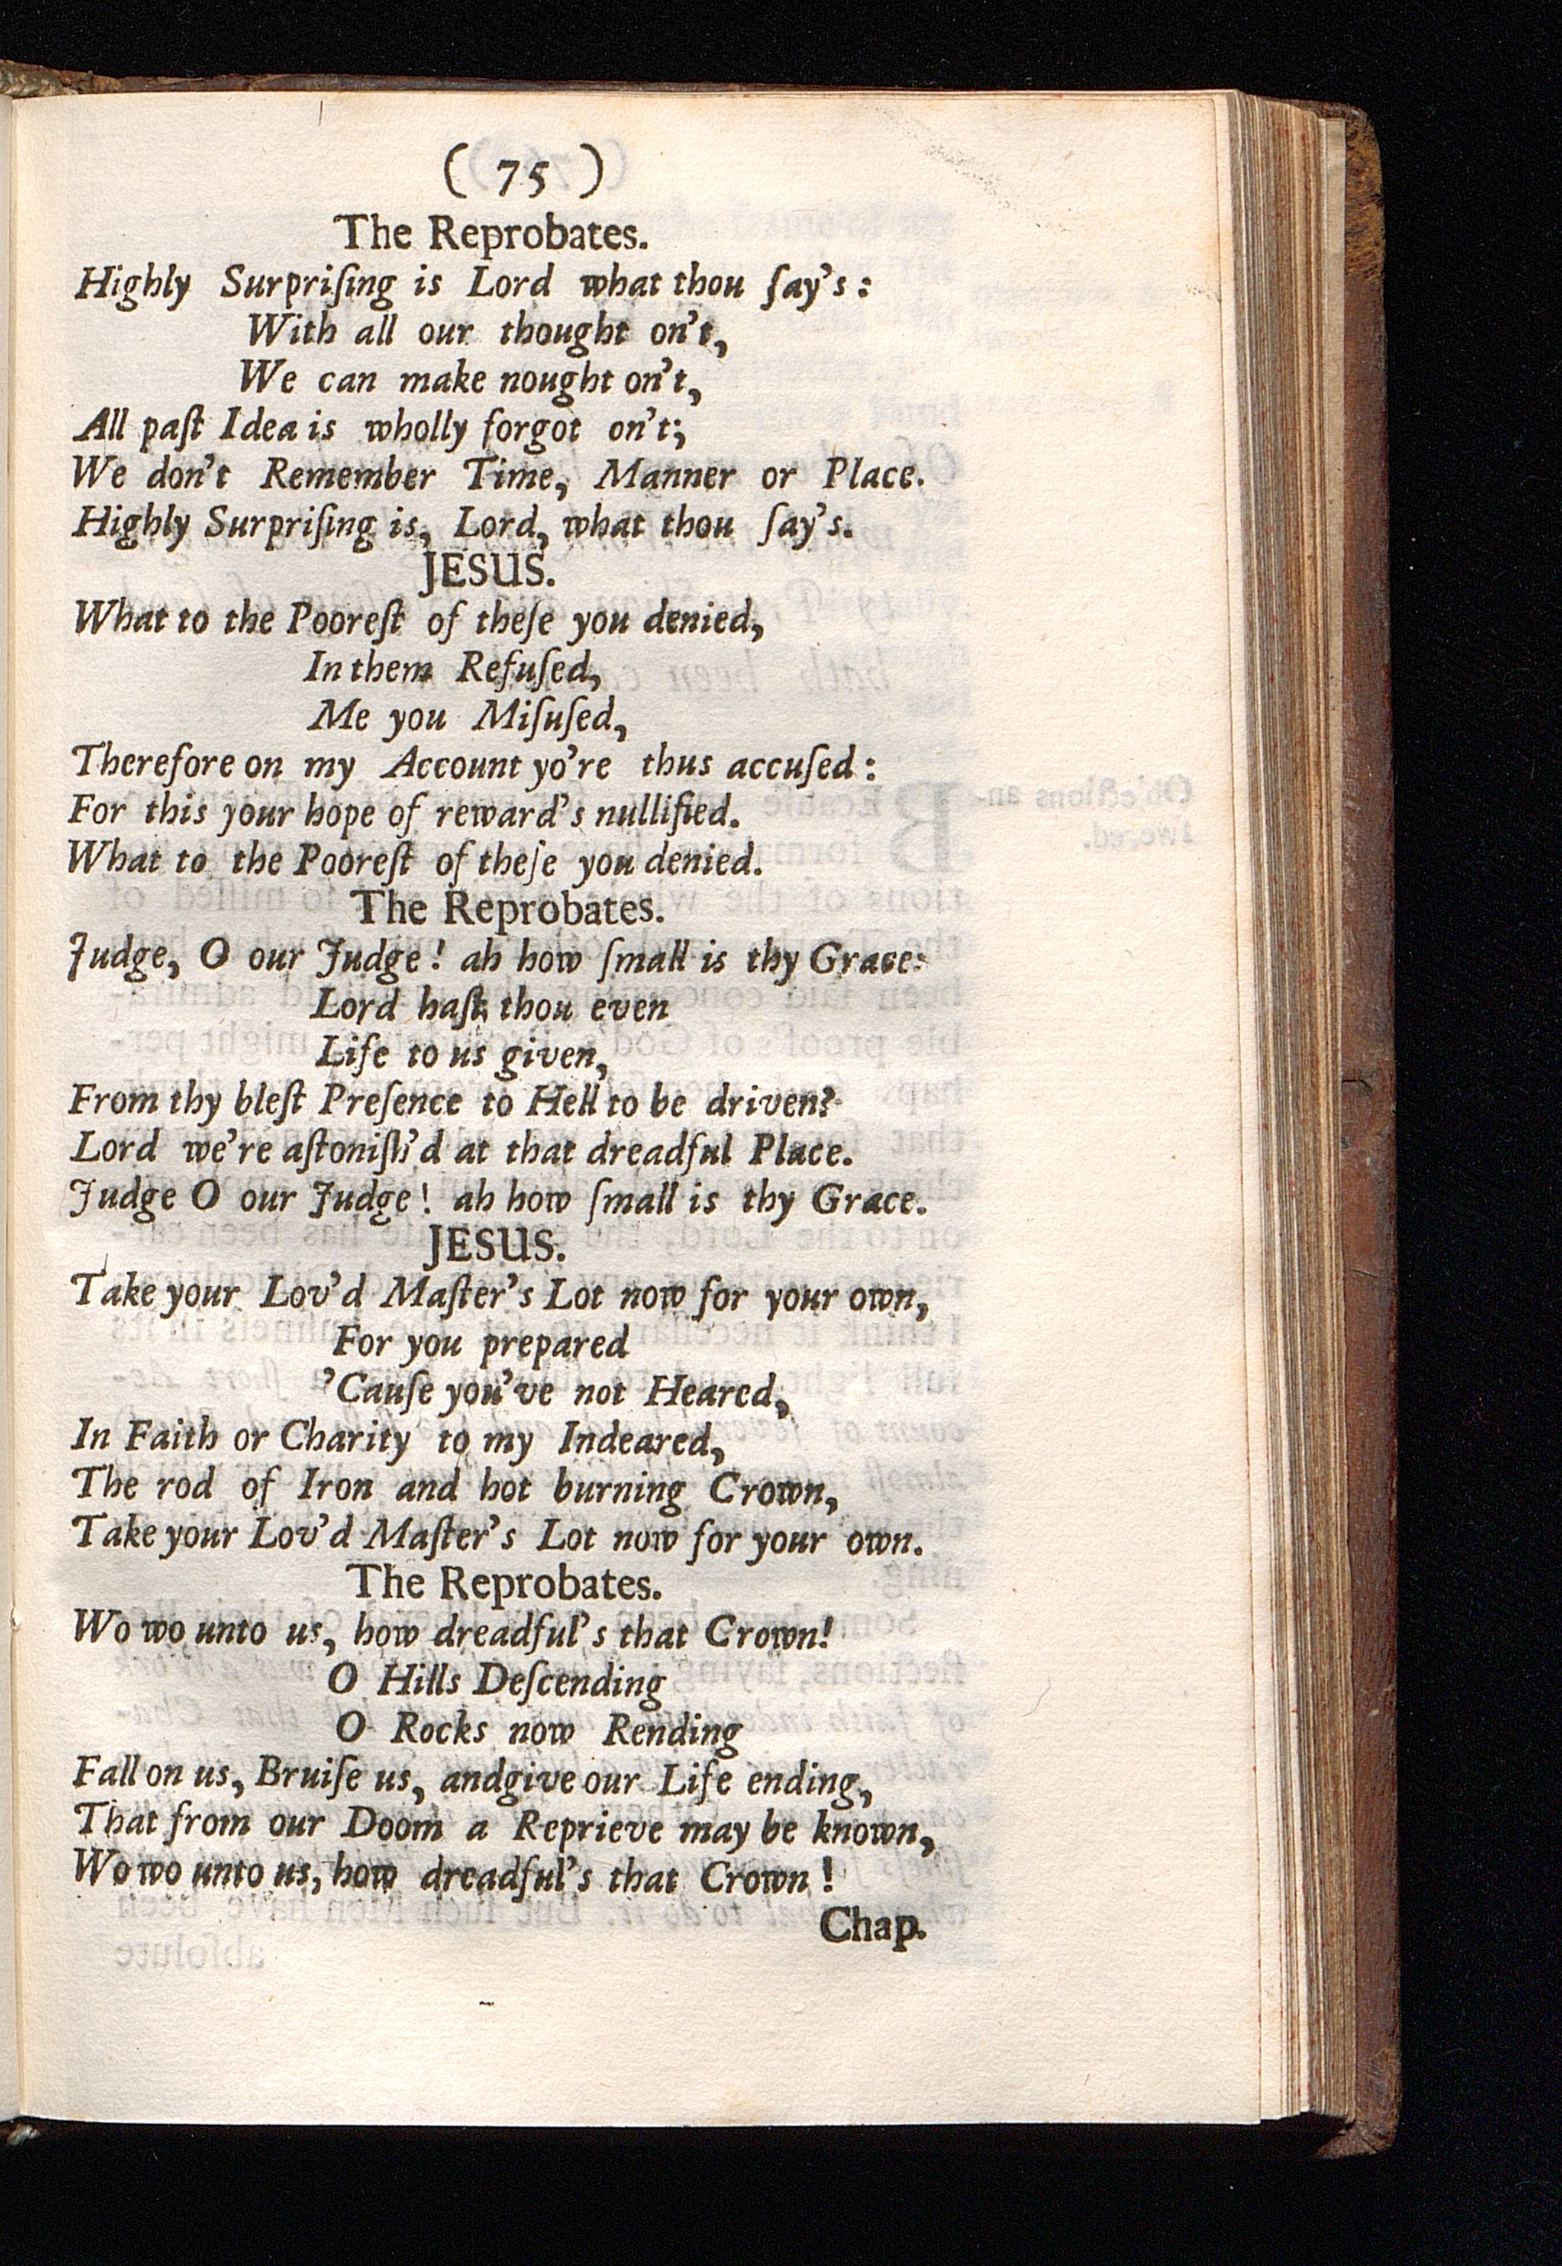 ( 75 )
The Reprobates.
Highly Surpriſing is Lord what thou ſay's:
With all our thought on't,
We can make nought on't,
All paſt Idea is wholly forgot on't;
We don't Remember Time, Manner or Place.
Highly Surpriſing is, Lord, what thou ſay's.
JESUS.
What to the Pooreſt of theſe you denied,
In them Refuſed,
Me you Miſuſed,
Therefore on my Account yo're thus accuſed:
For this your hope of reward's nullified.
What to the Pooreſt of theſe you denied.
The Reprobates.
Judge, O our Judge! ah how ſmall is thy Grace:
Lord haſt thou even
Life to us given,
From thy bleſt Preſence to Hell to be driven?
Lord we're aſtoniſh'd at that dreadful Place.
Judge O our Judge! ah how ſmall is thy Grace.
JESUS.
Take your Lov'd Maſter's Lot now for your own,
For you prepared
'Cauſe you've not Heared,
In Faith or Charity to my Indeared,
The rod of Iron and hot burning Crown,
Take your Lov'd Maſter's Lot now for your own.
The Reprobates.
Wo wo unto us, how dreadful's that Crown!
O Hills Deſcending
O Rocks now Rending
Fall on us, Bruiſe us, andgive our Life ending,
That from our Doom a Reprieve may be known,
Wo wo unto us, how dreadful's that Crown!
Chap.